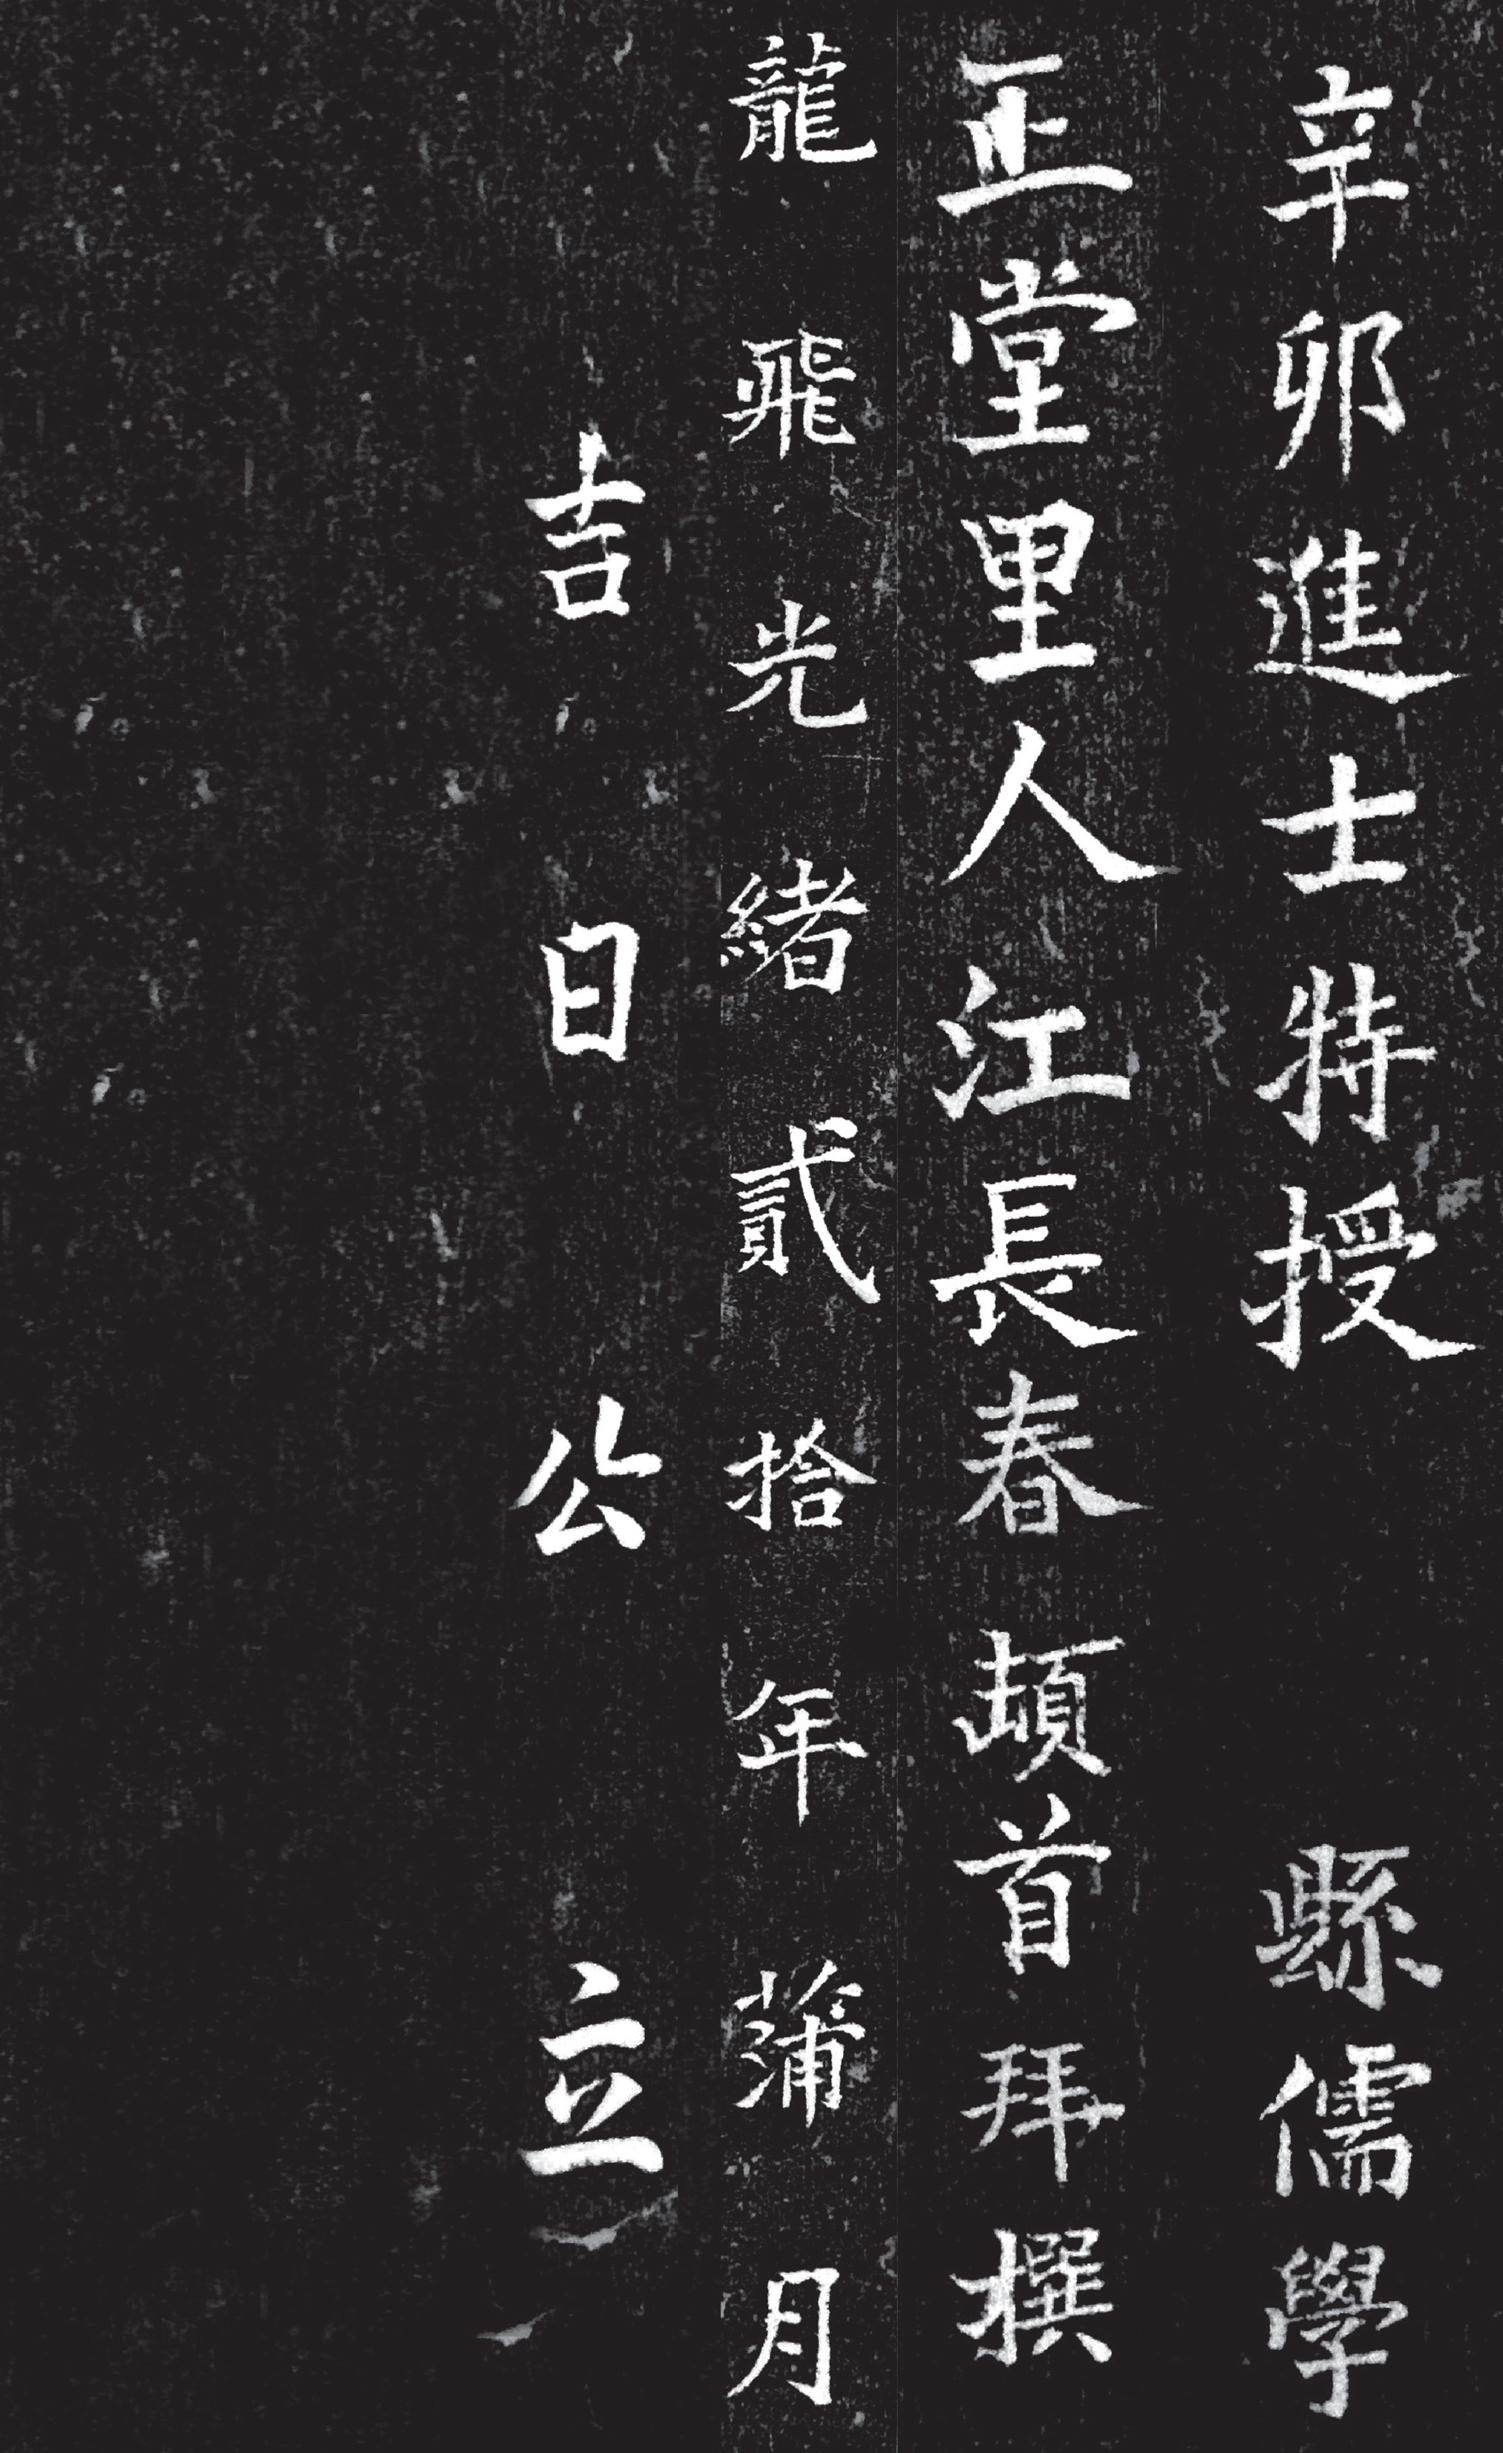 辛卯進士特授 縣儒學
正堂里人江長春頓首拜撰
龍飛光緒貳拾年蒲月
吉日公立